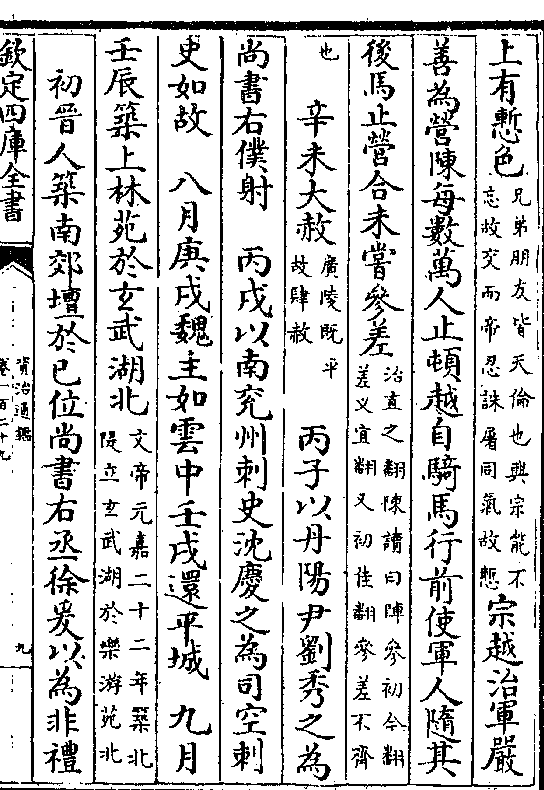 上有慙色兄弟朋友皆天倫也興宗能不忘故交而帝忍誅屠同氣故慙宗越治軍嚴
善為營陳每數萬人止頓越自騎馬行前使軍人隨其
後馬止營合未嘗參差治直之翻陳讀曰陣參初今翻差义宜翻又初佳翻參差不齊
也　辛未大赦廣陵既平故肆赦　丙子以丹陽尹劉秀之為
尚書右僕射　丙戌以南兖州刺史沈慶之為司空刺
史如故　八月庚戌魏主如雲中壬戌還平城　九月
壬辰築上林苑於玄武湖北文帝元嘉二十二年築北隄立玄武湖於樂游苑北
初晉人築南郊壇於巳位尚書右丞徐爰以為非禮
欽定四庫全書
資治通鑑
卷一百二十九
九